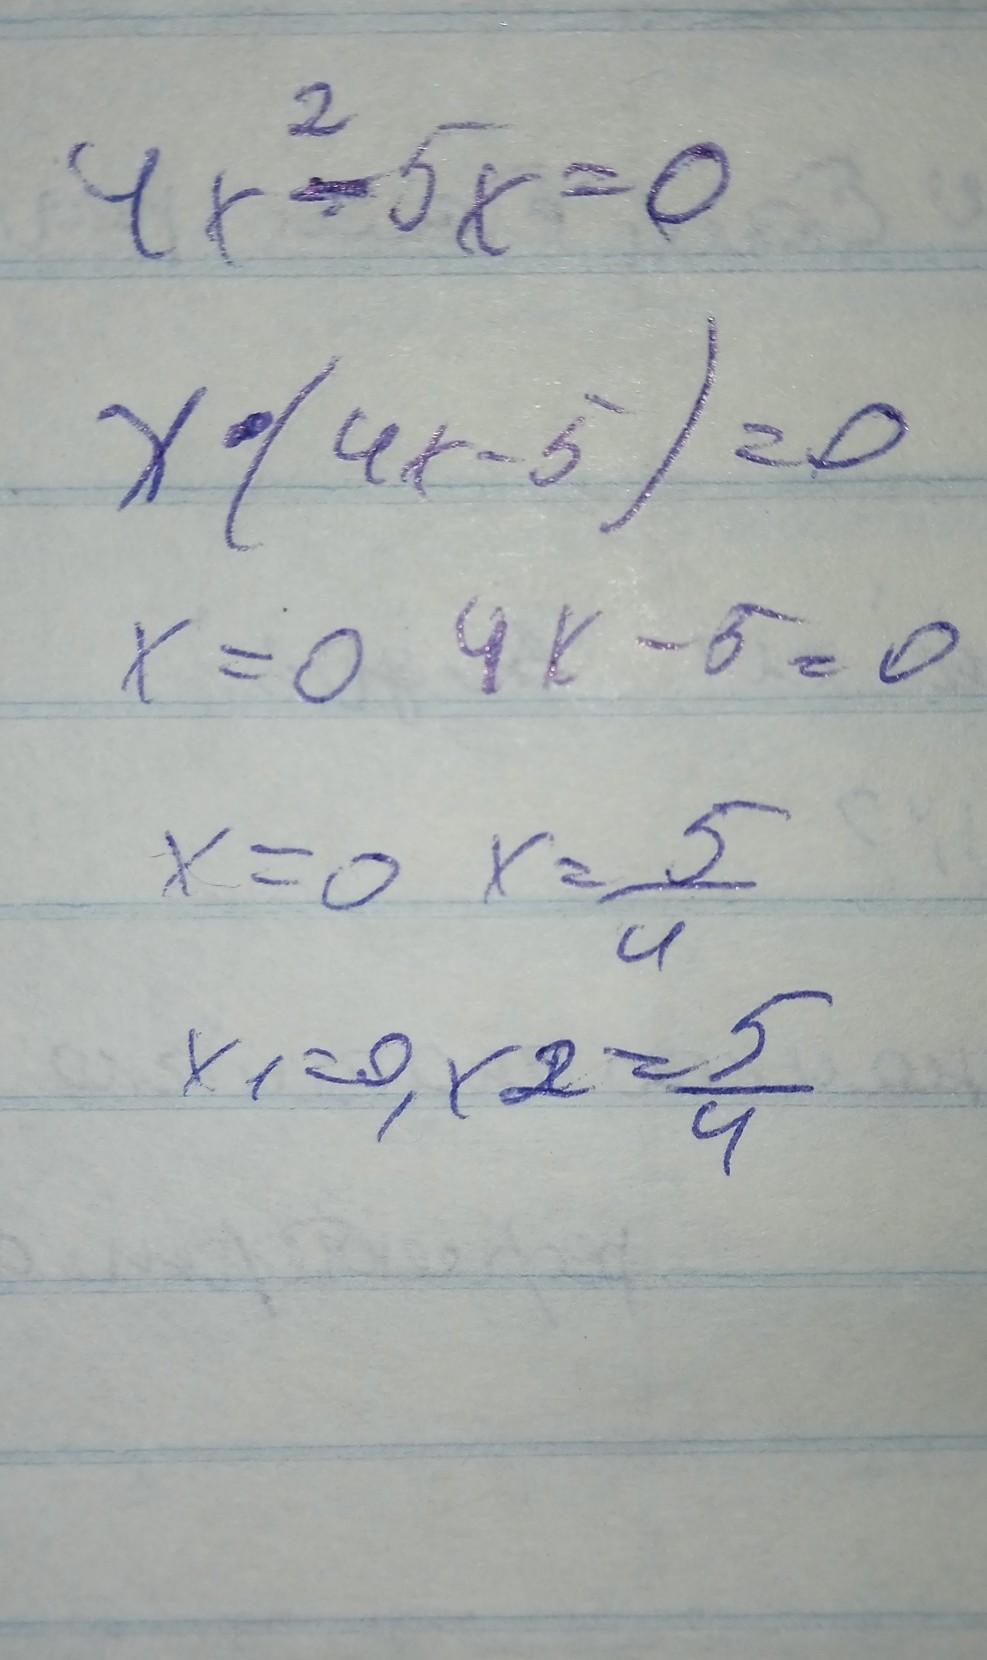 4x²-5x=0
x·(4x-5)=0
x=0 4x-5=0
x=0 x=5/4
x1=0, x2=5/4